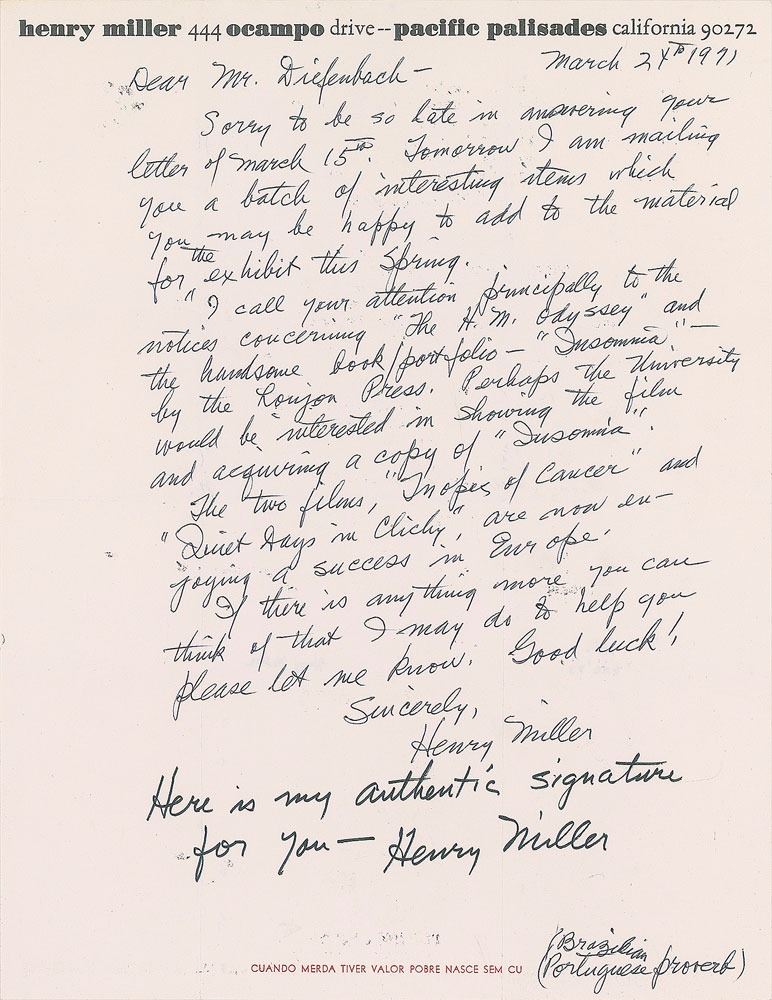 henry miller 444 ocampo drive -- pacific palisades california 90272
March 24th 1971
Dear Mr. Diefenbach –
Sorry to be so late in answering your
letter of March 15th. Tomorrow I am mailing
you a batch of interesting items which
you may be happy to add to the material
for the exhibit this Spring.
I call your attention principally to the
notices concerning "The H. M. Odyssey" and
the handsome book/portfolio – "Insomnia" –
by the Loujon Press. Perhaps the University
would be interested in showing the film
and acquiring a copy of "Insomnia".
The two films, "Tropic of Cancer" and
"Quiet Days in Clichy", are now en-
joying a success in Europe.
If there is anything more you can
think of that I may do to help you
please let me know. Good luck!
Sincerely,
Henry Miller
Here is my authentic signature
for you — Henry Miller
CUANDO MERDA TIVER VALOR POBRE NASCE SEM CU
(Brazilian
(Portuguese proverb)